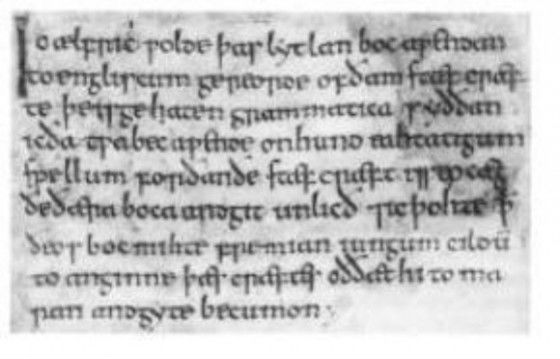 Ic ælfric ƿolde þas lytlan boc aƿendan
to engliscum gereorde of ðam stæfcræf
te þe is gehaten grammatica syððan
ic ða tƿa bec aƿende on hund eahtatigum
spellum forðan ðe stæfcræft is seo cæg
ðe ðæra boca andgit unlicð ⁊ic þohte ꝥ
ðeos boc mihte fremian iungum cildū
to anginne þæs cræftes oððæt hi to ma
ran andgyte becumon